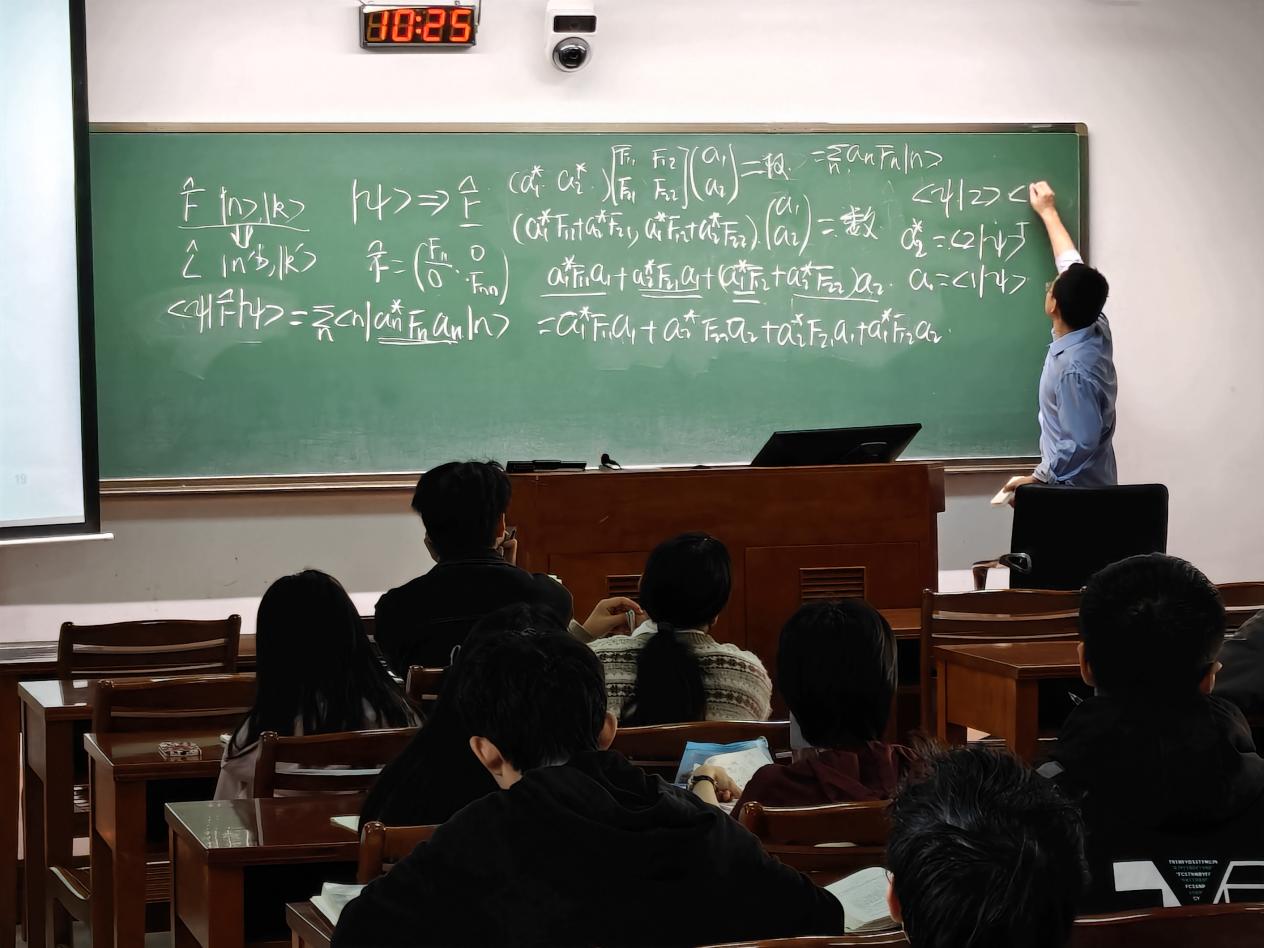 10:25
F̂ |n>,|k>
⇓
L̂ |n'>,|k'>
|ψ> ⇒ F̂
F̂ = (Fₙ 0 0 Fₙₙ)
<ψ|F̂|ψ> = Σₙ <n|aₙ* Fₙ aₙ|n>
(a₁* a₂*) [F₁₁ F₁₂ F₂₁ F₂₂] (a₁ a₂) = 数
= Σₙ aₙ Fₙ |n>
(a₁*F₁₁+a₂*F₂₁, a₁*F₁₂+a₂*F₂₂) (a₁ a₂) = 数
a₁*F₁₁a₁ + a₂*F₂₁a₁ + (a₁*F₁₂ + a₂*F₂₂)a₂
= a₁*F₁₁a₁ + a₂*F₂₂a₂ + a₂*F₂₁a₁ + a₁*F₁₂a₂
<ψ|2> <
a₂* = <2|ψ>†
a₁ = <1|ψ>
19